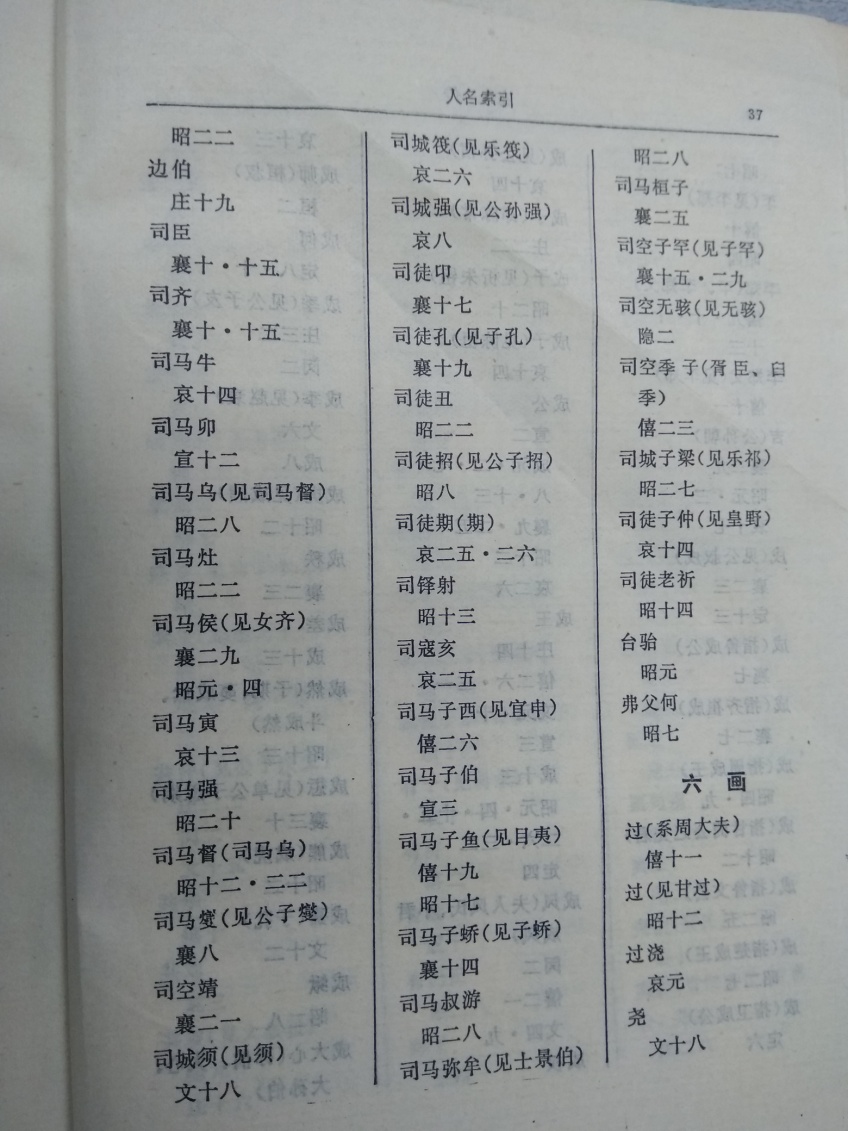 人名索引
37
昭二二
边伯
庄十九
司臣
襄十·十五
司齐
襄十·十五
司马牛
哀十四
司马卯
宣十二
司马乌(见司马督)
昭二八
司马灶
昭二二
司马侯(见女齐)
襄二九
昭元·四
司马寅
哀十三
司马强
昭二十
司马督(司马乌)
昭十二·二二
司马燮(见公子燮)
襄八
司空靖
襄二一
司城须(见须)
文十八
司城筏(见乐筏)
哀二六
司城强(见公孙强)
哀八
司徒卬
襄十七
司徒孔(见子孔)
襄十九
司徒丑
昭二二
司徒招(见公子招)
昭八
司徒期(期)
哀二五·二六
司铎射
昭十三
司寇亥
哀二五
司马子西(见宜申)
僖二六
司马子伯
宣三
司马子鱼(见目夷)
僖十九
昭十七
司马子蟜(见子蟜)
襄十四
司马叔游
昭二八
司马弥牟(见士景伯)
昭二八
司马桓子
襄二五
司空子罕(见子罕)
襄十五·二九
司空无骇(见无骇)
隐二
司空季子(胥臣、臼
季)
僖二三
司城子梁(见乐祁)
昭二七
司徒子仲(见皇野)
哀十四
司徒老祈
昭十四
台骀
昭元
弗父何
昭七
六画
过(系周大夫)
僖十一
过(见甘过)
昭十二
过浇
哀元
尧
文十八